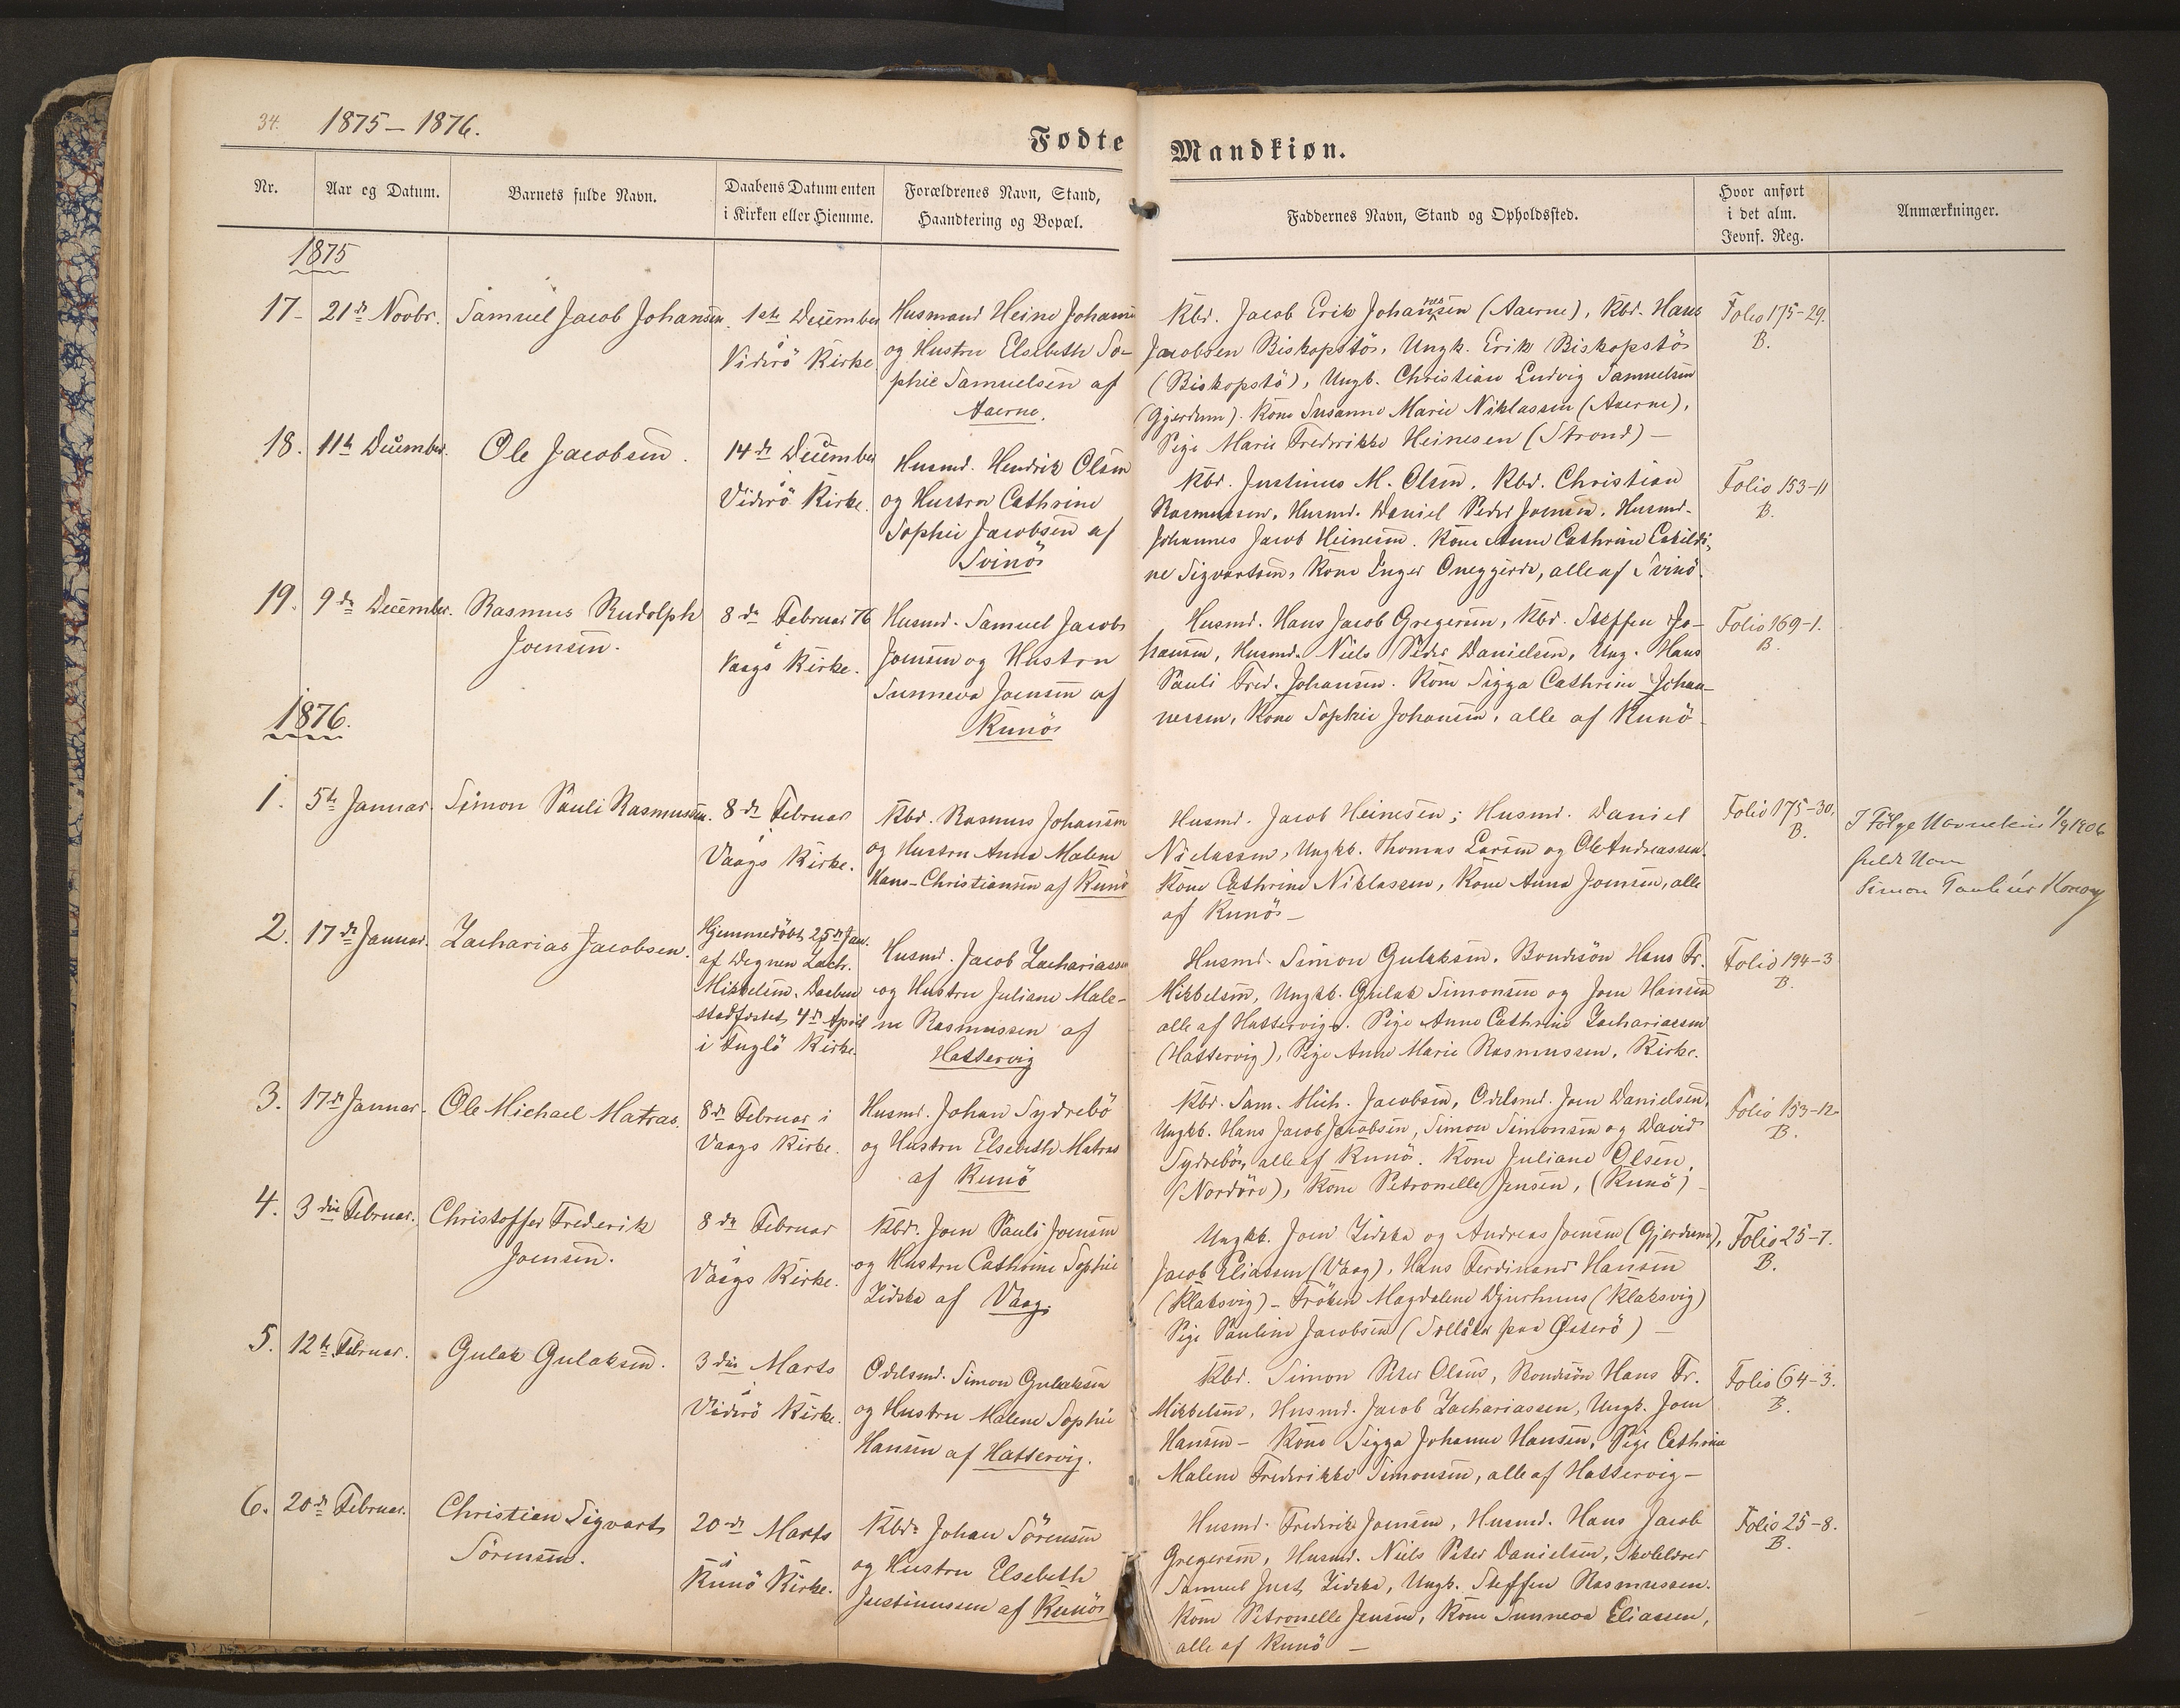 34.
1875 – 1876.
Fødte
Mandkiøn.
Nr.
Aar og Datum.
Barnets fulde Navn.
Daabens Datum enten
i Kirken eller Hiemme.
Forældrenes Navn, Stand,
Haandtering og Bopæl.
Faddernes Navn, Stand og Opholdssted.
Hvor anført
i det alm.
Jevnf. Reg.
Anmærkninger.
1875
17–
21de Novbr.
Samuel Jacob Johansen.
1ste December
i
Viderö Kirke
Husmand Heine Johansen
og Hustru Elsebeth So-
phie Samuelsen af
Aaerne.
Kbd. Jacob Erik Johannesen (Aaerne), Kbd. Hans
Jacobsen Biskopstö, Ungk. Erik Biskopstö
(Biskopstö), Ungk. Christian Ludvig Samuelsen
(Gjerdum). Kone Susanne Marie Niklassen (Aaerne),
Pige Marie Frederikke Heinesen (Strond) –
Folio 175–29.
B.
18.
11te December.
Ole Jacobsen.
14de December
i
Viderö Kirke.
Husmd. Hendrik Olsen
og Hustru Cathrine
Sophie Jacobsen af
Svinö
Kbd. Justinus M. Olsen, Kbd. Christian
Rasmussen, Husmd. Daniel Peder Joensen, Husmd.
Johannes Jacob Heinesen. Kone Anne Cathrine Eskildi-
ne Sigvartsen, Kone Inger Oneggerde, alle af Svinö.
Folio 153–11
B.
19.
9de December.
Rasmus Rudolph
Joensen.
8de Februar 76
i
Vaags Kirke.
Husmd. Samuel Jacob
Joensen og Hustru
Sunneva Joensen af
Kunö
Husmd. Hans Jacob Gregersen, Kbd. Steffen Jo-
hansen, Husmd. Niels Peder Danielsen, Ung. Hans
Pauli Fred. Johansen. Kone Sigga Cathrine Johan-
nessen, Kone Sophie Johansen, alle af Kunö
Folio 169–1.
B.
1876.
1.
5te Januar.
Simon Pauli Rasmussen.
8de Februar
i
Vaags Kirke.
Kbd. Rasmus Johansen
og Hustru Anna Malene
Hans-Christiansen af Kunö
Husmd. Jacob Heinesen; Husmd. Daniel
Niclassen, Ungkb. Thomas Larsen og Ole Andreassen.
Kone Cathrine Niklassen, Kone Anna Joensen, alle
af Kunö –
Folio 175–30.
B.
I Følge Navnebevis 1/9 1906
fuldt Navn
Simon
2.
17de Januar.
Zacharias Jacobsen.
Hjemmedöbt 25de Jan.
af Degnen Zach.
Mikkelsen. Daaben
stadfæstet 4de April
i Fuglö Kirke.
Husmd. Jacob Zachariassen
og Hustru Juliane Male-
ne Rasmussen af
Hattervig
Husmd. Simon Gulaksen, Bondesön Hans Fr.
Mikkelsen, Ungkb. Gulak Simonsen og Joen Hansen
alle af Hattervig. Pige Anne Cathrine Zachariassen
(Hattervig), Pige Anne Marie Rasmussen, Kirke.
Folio 194–3
B.
3.
17de Januar.
Ole Michael Matras.
8de Februar i
Vaags Kirke.
Husmd. Johan Sydrebö
og Hustru Elsebeth Matras
af Kunö
Kbd. Sam. Mich. Jacobsen, Odelsmd. Joen Danielsen,
Ungkb. Hans Jacob Jacobsen, Simon Simonsen og David
Sydrebö, alle af Kunö. Kone Juliane Olsen,
(Nordöre), Kone Petronelle Jensen, (Kunö) –
Folio 153–12
B.
4.
3die Februar.
Christoffer Frederik
Joensen.
8de Februar
i
Vaags Kirke.
Kbd. Joen Pauli Joensen
og Hustru Cathrine Sophie
Zidska af Vaag.
Ungkb. Joen Zidska og Andreas Joensen (Gjerdum),
Jacob Eliassen (Vaag), Hans Ferdinand Hansen
(Klaksvig) – Fröken Magdalene Djurhuus (Klaksvig)
Pige Pauline Jacobsen (Sellätr paa Østerö) –
Folio 25–7.
B.
5.
12te Februar.
Gulak Gulaksen.
3die Marts
i
Viderö Kirke.
Odelsmd. Simon Gulaksen
og Hustru Malene Sophie
Hansen af Hattervig.
Kbd. Simon Peter Olsen, Bondesön Hans Fr.
Mikkelsen, Husmd. Jacob Zachariassen, Ungk. Joen
Hansen – Kone Sigga Johanne Hansen, Pige Cathrine
Malene Frederikke Simonsen, alle af Hattervig –
Folio 64–3.
B.
6.
20de Februar.
Christian Sigvart
Sörensen.
20de Marts
i
Kunö Kirke.
Kbd. Johan Sörensen
og Hustru Elsebeth
Justinussen af Kunö
Husmd. Frederik Joensen, Husmd. Hans Jacob
Gregersen, Husmd. Niels Peter Danielsen, Skolelærer
Samuel Just Zidska, Ungk. Steffen Rasmussen.
Kone Petronelle Jensen, Kone Sunneva Eliassen,
alle af Kunö –
Folio 25–8.
B.